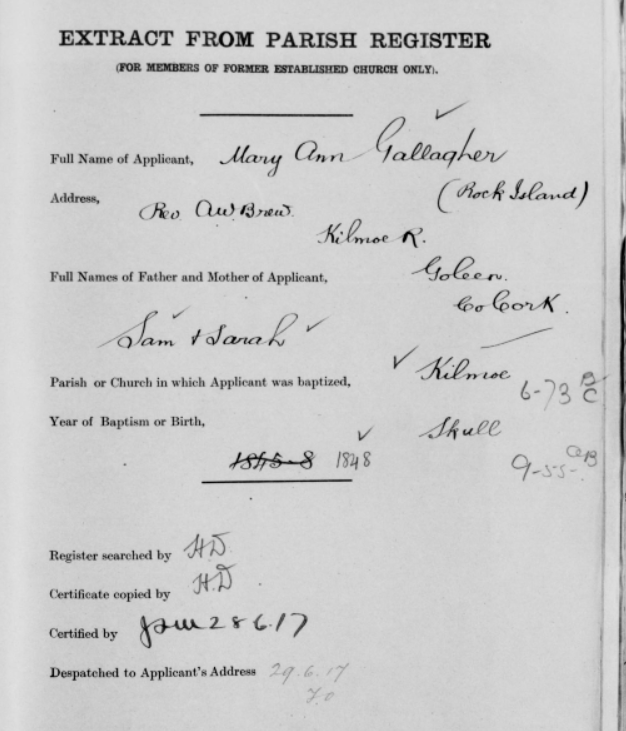 EXTRACT FROM PARISH REGISTER
(FOR MEMBERS OF FORMER ESTABLISHED CHURCH ONLY).
Full Name of Applicant, Mary Ann Gallagher
Address, (Rock Island)
Rev. A.W. Brew.
Kilmoe R.
Full Names of Father and Mother of Applicant, Goleen.
Co Cork.
Sam & Sarah
Parish or Church in which Applicant was baptized, Kilmoe
6-73 B C
Year of Baptism or Birth, Skull
1845-8 1848 9-55-
Register searched by H.D.
Certificate copied by H.D.
Certified by 28 6.17
Despatched to Applicant's Address 29.6.17